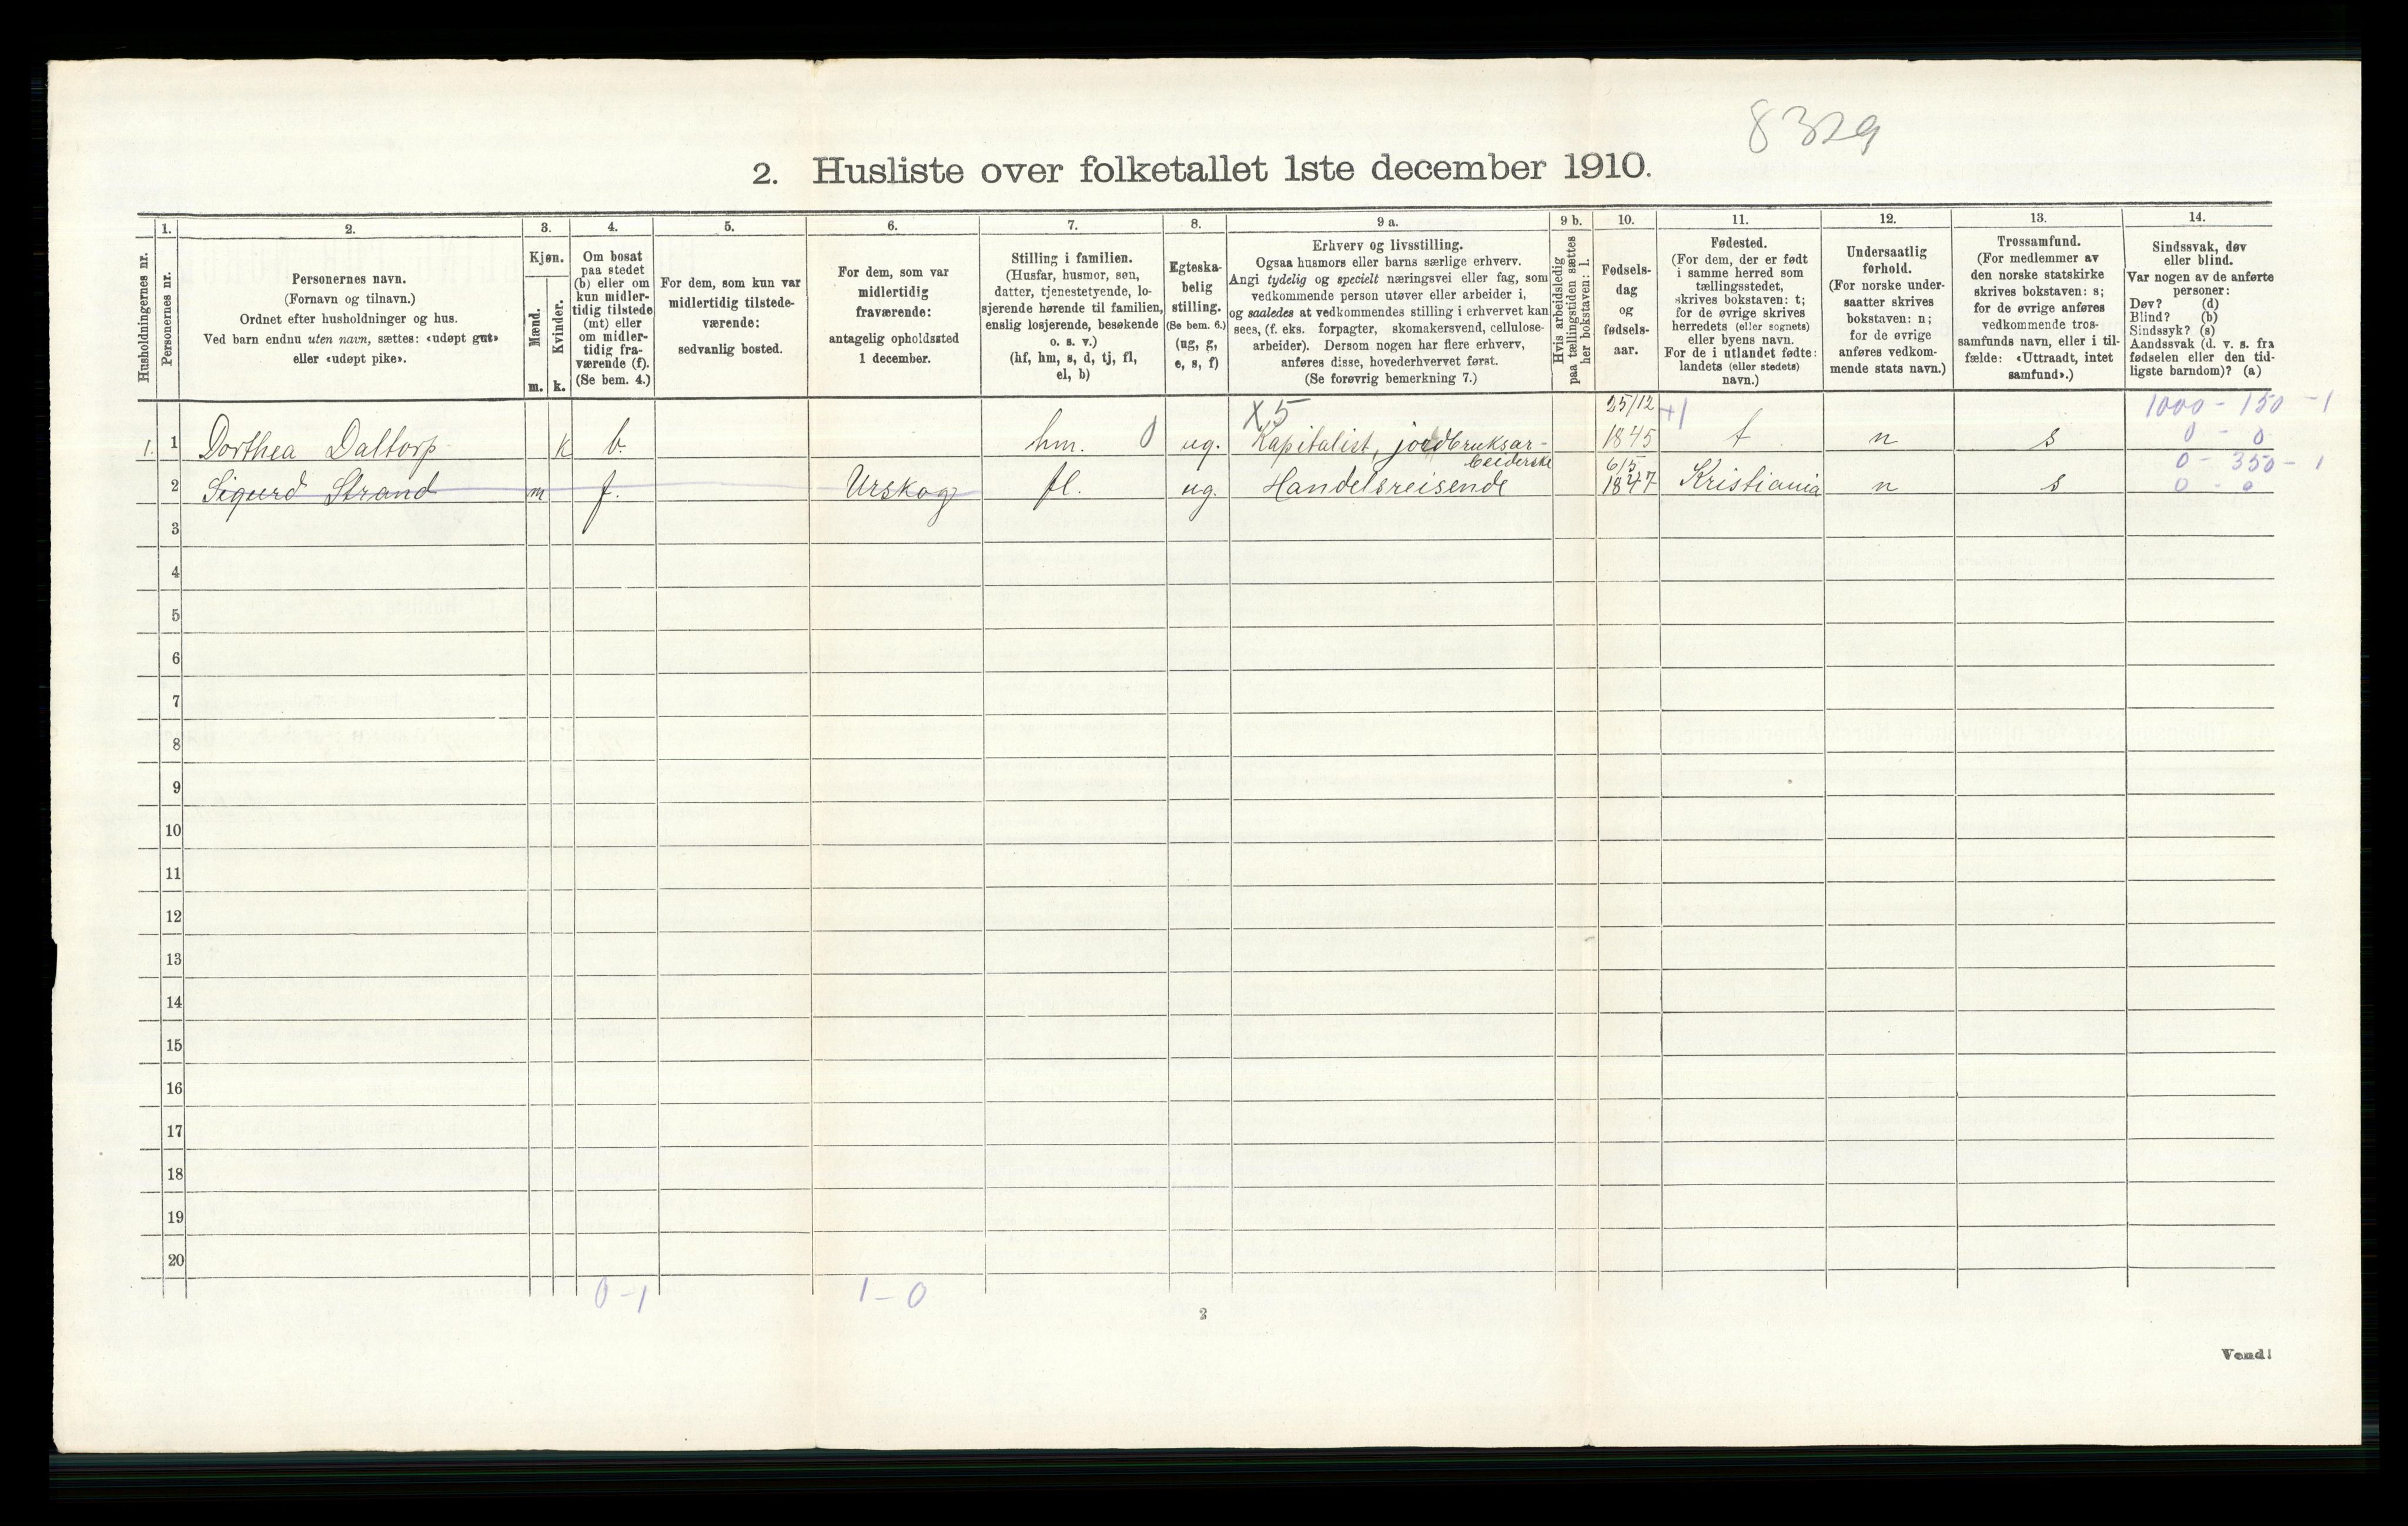 8329
2. Husliste over folketallet 1ste december 1910.
Husholdningernes nr.
1.
Personernes nr.
2.
Personernes navn.
(Fornavn og tilnavn.)
Ordnet efter husholdninger og hus.
Ved barn endnu uten navn, sættes: «udøpt gut»
eller «udøpt pike».
3.
Kjøn.
Mænd.
Kvinder.
m. k.
4.
Om bosat
paa stedet
(b) eller om
kun midler-
tidig tilstede
(mt) eller
om midler-
tidig fra-
værende (f).
(Se bem. 4.)
5.
For dem, som kun var
midlertidig tilstede-
værende:
sedvanlig bosted.
6.
For dem, som var
midlertidig
fraværende:
antagelig opholdssted
1 december.
7.
Stilling i familien.
(Husfar, husmor, søn,
datter, tjenestetyende, lo-
sjerende hørende til familien,
enslig losjerende, besøkende
o. s. v.)
(hf, hm, s, d, tj, fl,
el, b)
8.
Egteska-
belig
stilling.
(Se bem. 6.)
(ug, g,
e, s, f)
9 a.
Erhverv og livsstilling.
Ogsaa husmors eller barns særlige erhverv.
Angi tydelig og specielt næringsvei eller fag, som
vedkommende person utøver eller arbeider i,
og saaledes at vedkommendes stilling i erhvervet kan
sees, (f. eks. forpagter, skomakersvend, cellulose-
arbeider). Dersom nogen har flere erhverv,
anføres disse, hovederhvervet først.
(Se forøvrig bemerkning 7.)
9 b.
Hvis arbeidsledig
paa tællingstiden sættes
her bokstaven: l.
10.
Fødsels-
dag
og
fødsels-
aar.
11.
Fødested.
(For dem, der er født
i samme herred som
tællingsstedet,
skrives bokstaven: t;
for de øvrige skrives
herredets (eller sognets)
eller byens navn.
For de i utlandet fødte:
landets (eller stedets)
navn.)
12.
Undersaatlig
forhold.
(For norske under-
saatter skrives
bokstaven: n;
for de øvrige
anføres vedkom-
mende stats navn.)
13.
Trossamfund.
(For medlemmer av
den norske statskirke
skrives bokstaven: s;
for de øvrige anføres
vedkommende tros-
samfunds navn, eller i til-
fælde: «Uttraadt, intet
samfund».)
14.
Sindssvak, døv
eller blind.
Var nogen av de anførte
personer:
Døv? (d)
Blind? (b)
Sindssyk? (s)
Aandssvak (d. v. s. fra
fødselen eller den tid-
ligste barndom)? (a)
X5 25/12 +1 1000 - 150 - 1
1. 1 Dorthea Daltorp k b. hm. 0 ug. Kapitalist, jordbruksar- 1845 t n s 0 - 0
beiderske 6/5 0 - 350 - 1
2 Sigurd Strand m f. Urskog fl. ug. Handelsreisende 1847 Kristiania n s 0 - 0
3
4
5
6
7
8
9
10
11
12
13
14
15
16
17
18
19
20
0 - 1 1 - 0
2
Vend!